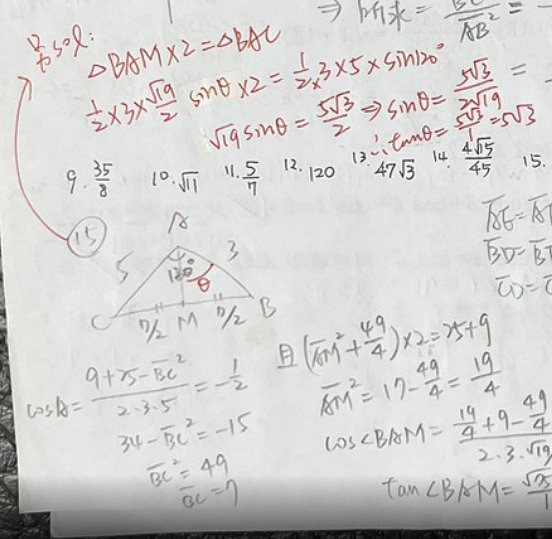 ⇒ 所求 = BC² / AB² =
另sol:
△BAM×2 = △BAC
1/2×3×√19/2 sinθ×2 = 1/2×3×5×sin120°
√19 sinθ = 5√3/2 ⇒ sinθ = 5√3/2√19 =
∴tanθ = 5√3/1 = 5√3
9. 35/8 10. √11 11. 5/7 12. 120 13. 47√3 14. 4√15/45 15.
15
A
5 120° 3
θ
C 7/2 M 7/2 B
cosA = (9+25-BC²)/(2·3·5) = -1/2
34-BC² = -15
BC² = 49
BC = 7
AE = A
BD = B
CD =
且(AM²+49/4)×2 = 25+9
AM² = 17-49/4 = 19/4
cos∠BAM = (19/4+9-49/4)/(2·3·√19
tan∠BAM = √75/1